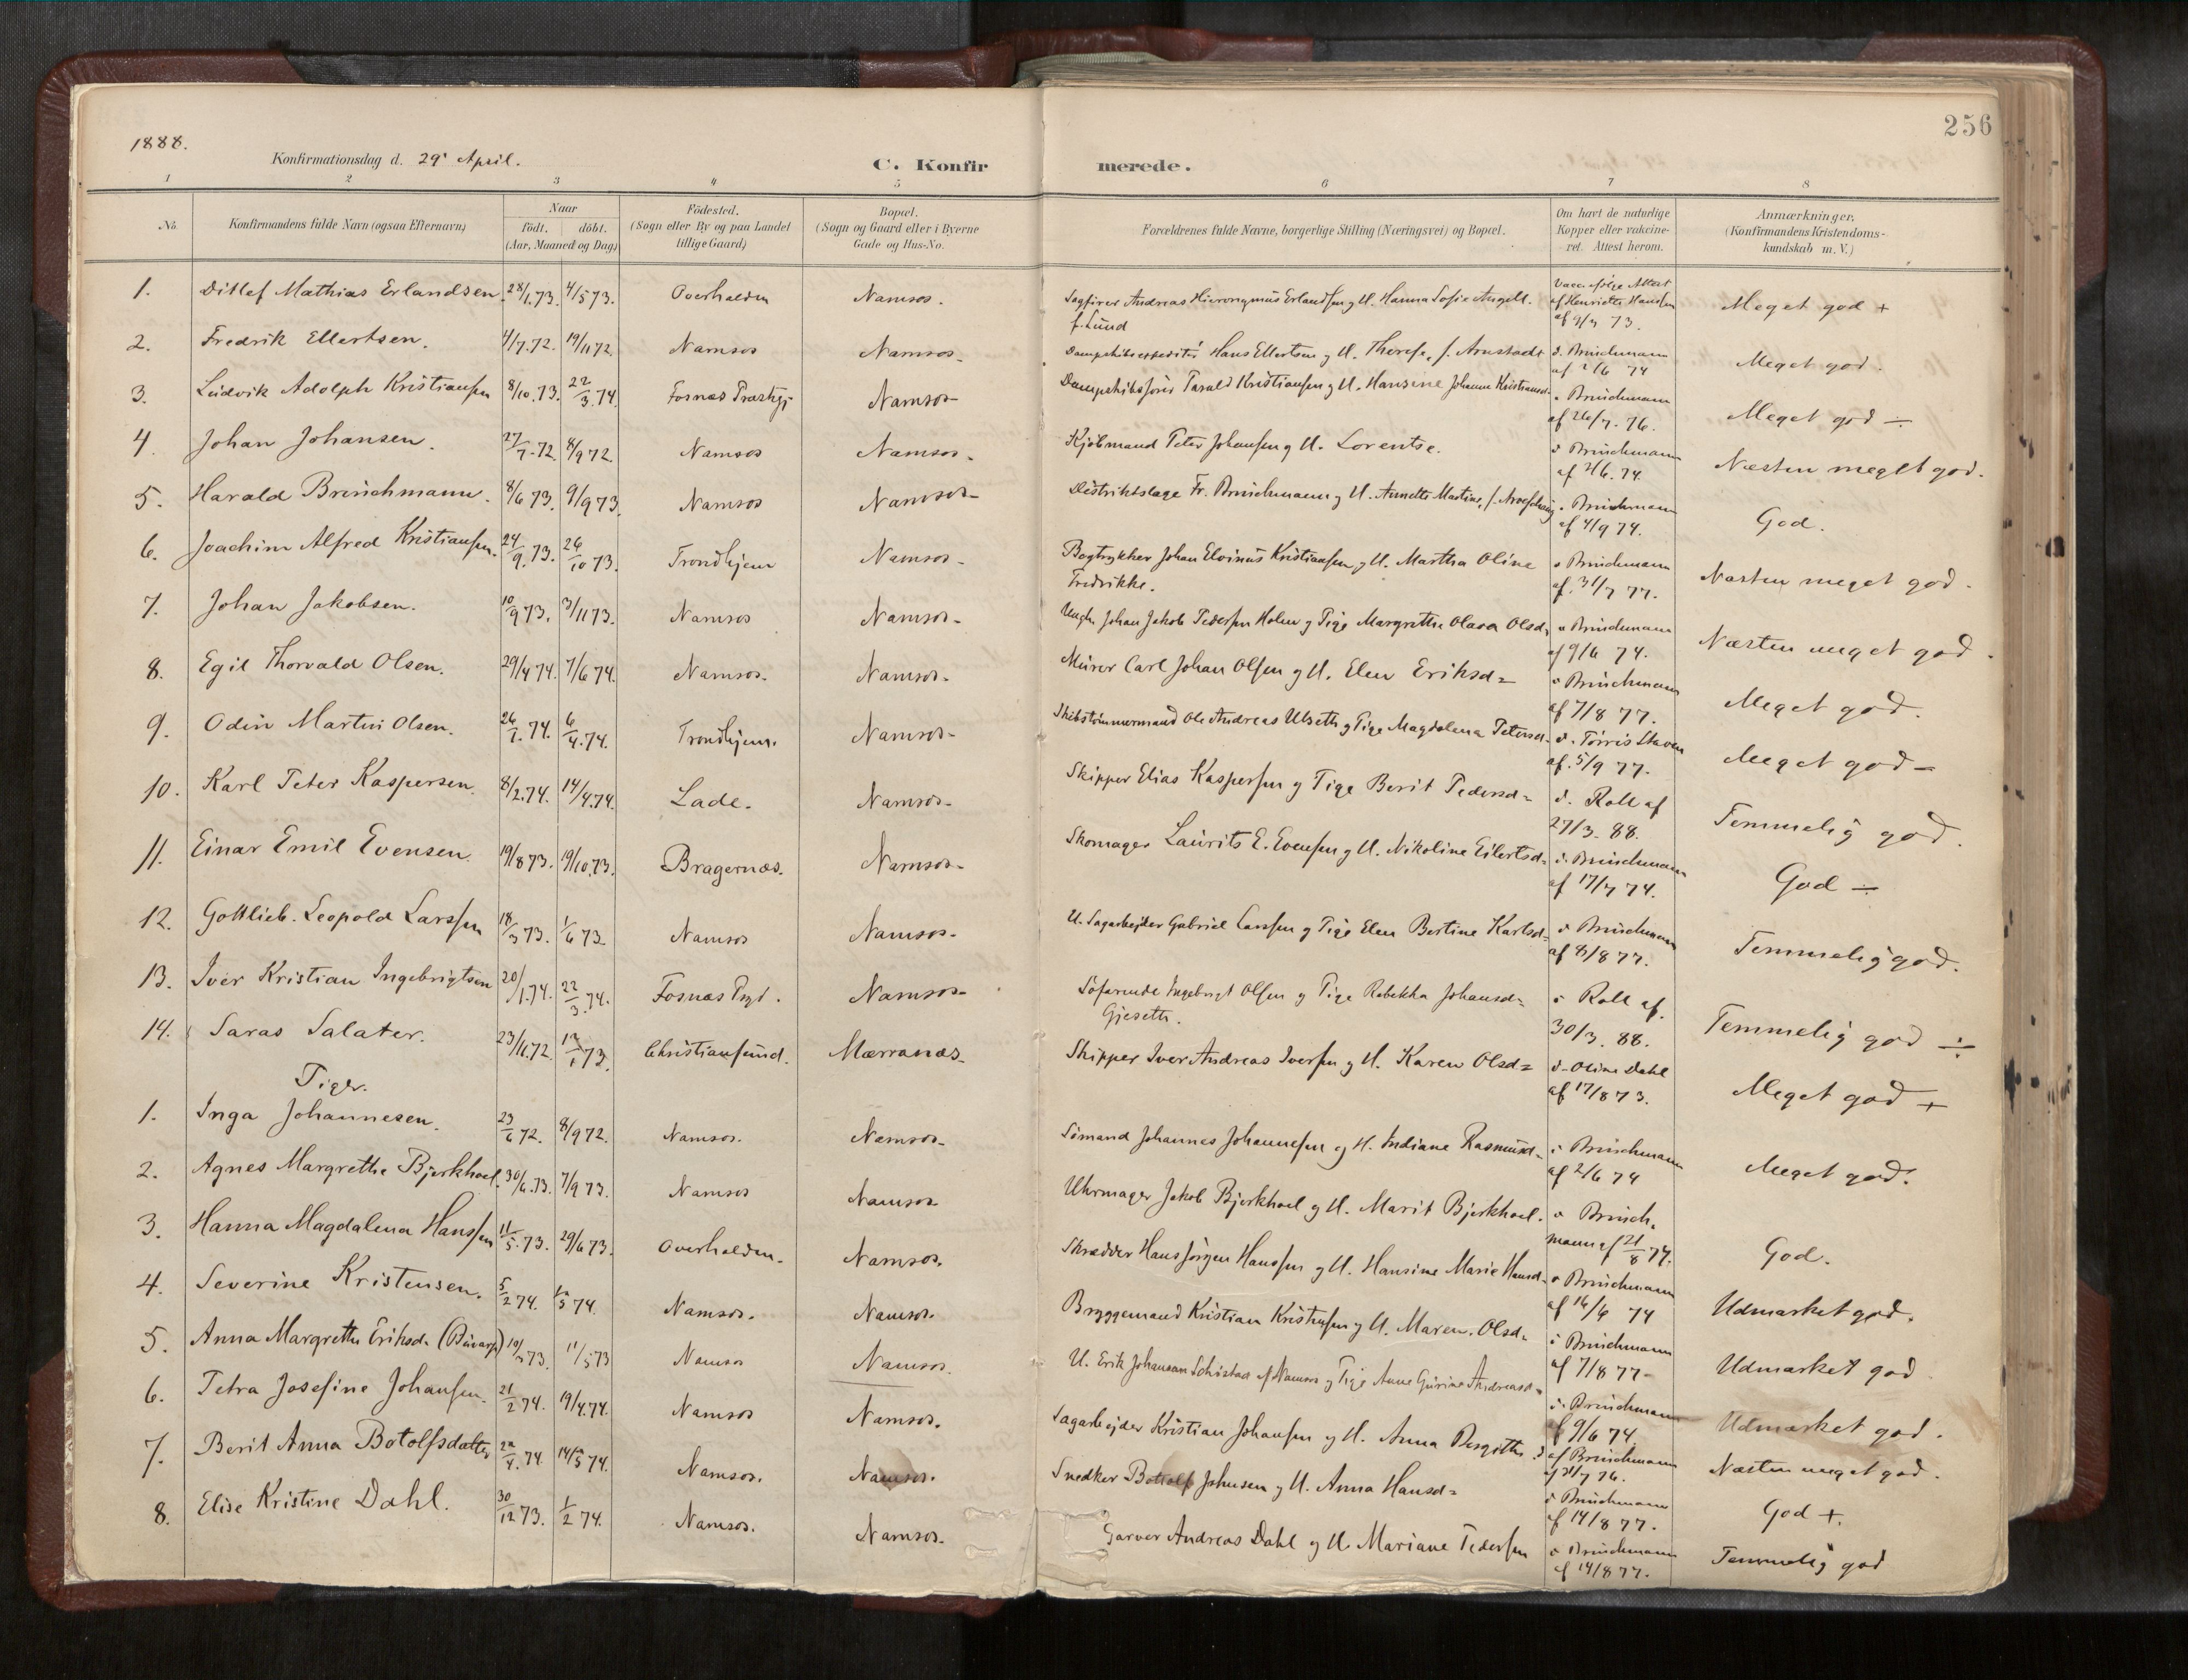 256
1888.
Konfirmationsdag d. 29' April.
C. Konfirmerede.
1 2 3 4 5 6 7 8
No. Konfirmandens fulde Navn (ogsaa Efternavn) Naar födt. döbt. (Aar, Maaned og Dag) Födested. (Sogn eller By og paa Landet tillige Gaard) Bopæl. (Sogn og Gaard eller i Byerne Gade og Hus-No. Forældrenes fulde Navne, borgerlige Stilling (Næringsvei) og Bopæl. Om havt de naturlige Kopper eller vakcineret. Attest herom. Anmærkninger. (Konfirmandens Kristendomskundskab m. V.)
1. Ditlef Mathias Erlandsen 28/1.73. 4/5 73. Overhalden Namsos. Sagfører Andreas Hieronymus Erlandsen g H. Hanna Sofie Angell. Vacc. ifølge Attest Meget god +
f. Lund af Henriette Hansen
af 9/7 73.
2. Fredrik Ellertsen. 4/7.72. 19/11 72. Namsos Namsos. Dampskibsexpeditör Hans Ellertsen g H. Therese, f. Arnstadt d. Brüichmann Meget god.
af 2/6 74
3. Ludvik Adolph Kristiansen 8/10.73. 22/3.74. Fosnæs Præstgj. Namsos Dampskibsförer Tarald Kristiansen g H. Hansine Johanne Kristiansd. Brüichmann Meget god ÷
af 26/7.76.
4. Johan Johansen. 27/7.72. 8/9 72. Namsos Namsos. Kjöbmand Peter Johansen g H. Lorentse. d Brüichmann Næsten meget god.
af 2/6.74.
5. Harald Brüichmann. 8/6 73. 9/9 73. Namsos Namsos Distriktslæge Fr. Brüichmann g H. Annette Martine, f. Brüichmann God.
af 4/9 74.
6. Joachim Alfred Kristiansen. 24/9.73. 26/10 73. Trondhjem Namsos. Bogtrykker Johan Elvinus Kristiansen g H. Martha Oline Brüichmann Næsten meget god.
Fredrikke. af 31/7 77.
7. Johan Jakobsen. 10/9 73. 3/11 73. Namsos Namsos. Ungk. Johan Jakob Pedersen Holm g Pige Margrethe Olava Olsd. Brüichmann Næsten meget god.
af 9/6 74.
8. Egil Thorvald Olsen. 29/4 74. 7/6 74. Namsos. Namsos. Murer Carl Johan Olsen g H. Elen Eriksd= Brüichmann Meget god.
af 7/8 77.
9. Odin Martin Olsen. 26/1.74. 6/4.74. Trondhjem. Namsos. Skibstömmermand Ole Andreas Ulseth g Pige Magdalena Petersd. d. Törris Staven Meget god -
af. 5/9 77.
10. Karl Peter Kaspersen. 8/2.74. 14/4.74. Lade. Namsos. Skipper Elias Kaspersen g Pige Berit Pedersd= d. Roll af Temmelig god.
27/3.88.
11. Einar Emil Evensen. 19/8 73. 19/10.73. Bragernæs. Namsos. Skomager Laurits E. Evensen g H. Nikoline Eilertsd= d. Brüichmann God ÷
af 17/7 74.
12. Gottlieb Leopold Larssen 18/3 73. 1/6 73. Namsos Namsos. U. Sagarbejder Gabriel Larssen g Pige Elen Bertine Karlsd= d Brüichmann Temmelig god.
af 8/8 77.
13. Iver Kristian Ingebrigtsen 20/1.74. 22/3.74. Fosnæs Prgd. Namsos. Söfarende Ingebrigt Olsen g Pige Rebekka Johansd= d Roll af. Temmelig god ÷
Gjeseth. 30/3.88.
14. Saras Salater. 23/11.72. 12/1 73. Christiansund. Mærranæs. Skipper Iver Andreas Iversen g H. Karen Olsd= d. Oline Dahl Meget god +
af 17/8 73.
Piger.
1. Inga Johannesen. 23/6 72. 8/9 72. Namsos. Namsos. Sömand Johannes Johannesen g H. Indiane Rasmusd. d Brüichmann Meget god.
af 2/6 74
2. Agnes Margrethe Bjerkhoel. 30/6.73. 7/9 73. Namsos Namsos Uhrmager Jakob Bjerkhoel g H. Marit Bjerkhoel. d Brüich- God.
mann af 21/8 77.
3. Hanna Magdalena Hanssen 11/5.73. 29/6 73. Overhalden. Namsos. Skrædder Hans Jörgen Hanssen g H. Hansine Marie Hansd. d Brüichmann Udmærket god.
af 16/6 74
4. Severine Kristensen. 5/2 74. 74. Namsos. Namsos. Bryggemand Kristian Kristensen g H. Maren Olsd= d Brüichmann Udmærket god
af 7/8 77-
5. Anna Margrethe Eriksd. 10/3 73. 11/5 73 Namsos Namsos. U. Erik Johansan Schistad af Namsos g Pige Anne Gurine Andreasd= d. Brüichmann Udmærket god.
af 9/6 74.
6. Petra Josefine Johansen. 21/2 74. 19/4.74. Namsos Namsos. Sagarbejder Kristian Johansen g H. Anna Bergitte d af Brüichmann Næsten meget god.
af 31/7 76.
7. Berit Anna Botolfsdatter 22/4.74. 14/5 74. Namsos. Namsos. Snedker Botolf Johnsen g H. Anna Hansd= d Brüichmann God +.
af 14/8 77.
8. Elise Kristine Dahl. 30/12 73. 1/2 74. Namsos. Namsos. Garver Andreas Dahl g H. Mariane Pedersen d Brüichmann Temmelig god
af 14/8 77.